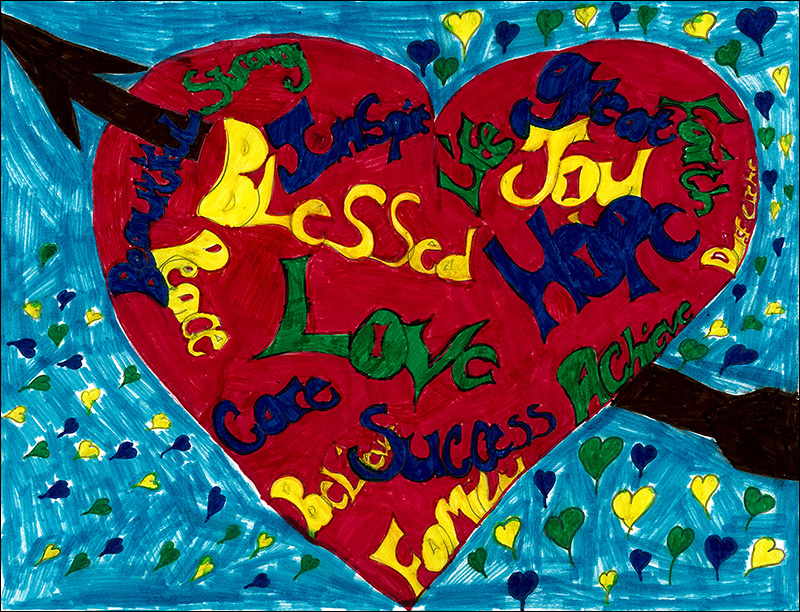 Strong
Great
Inspire
Faith
Beautiful
Blessed
Life
Joy
Hope
Peace
Love
Achieve
Care
Success
Believe
Family